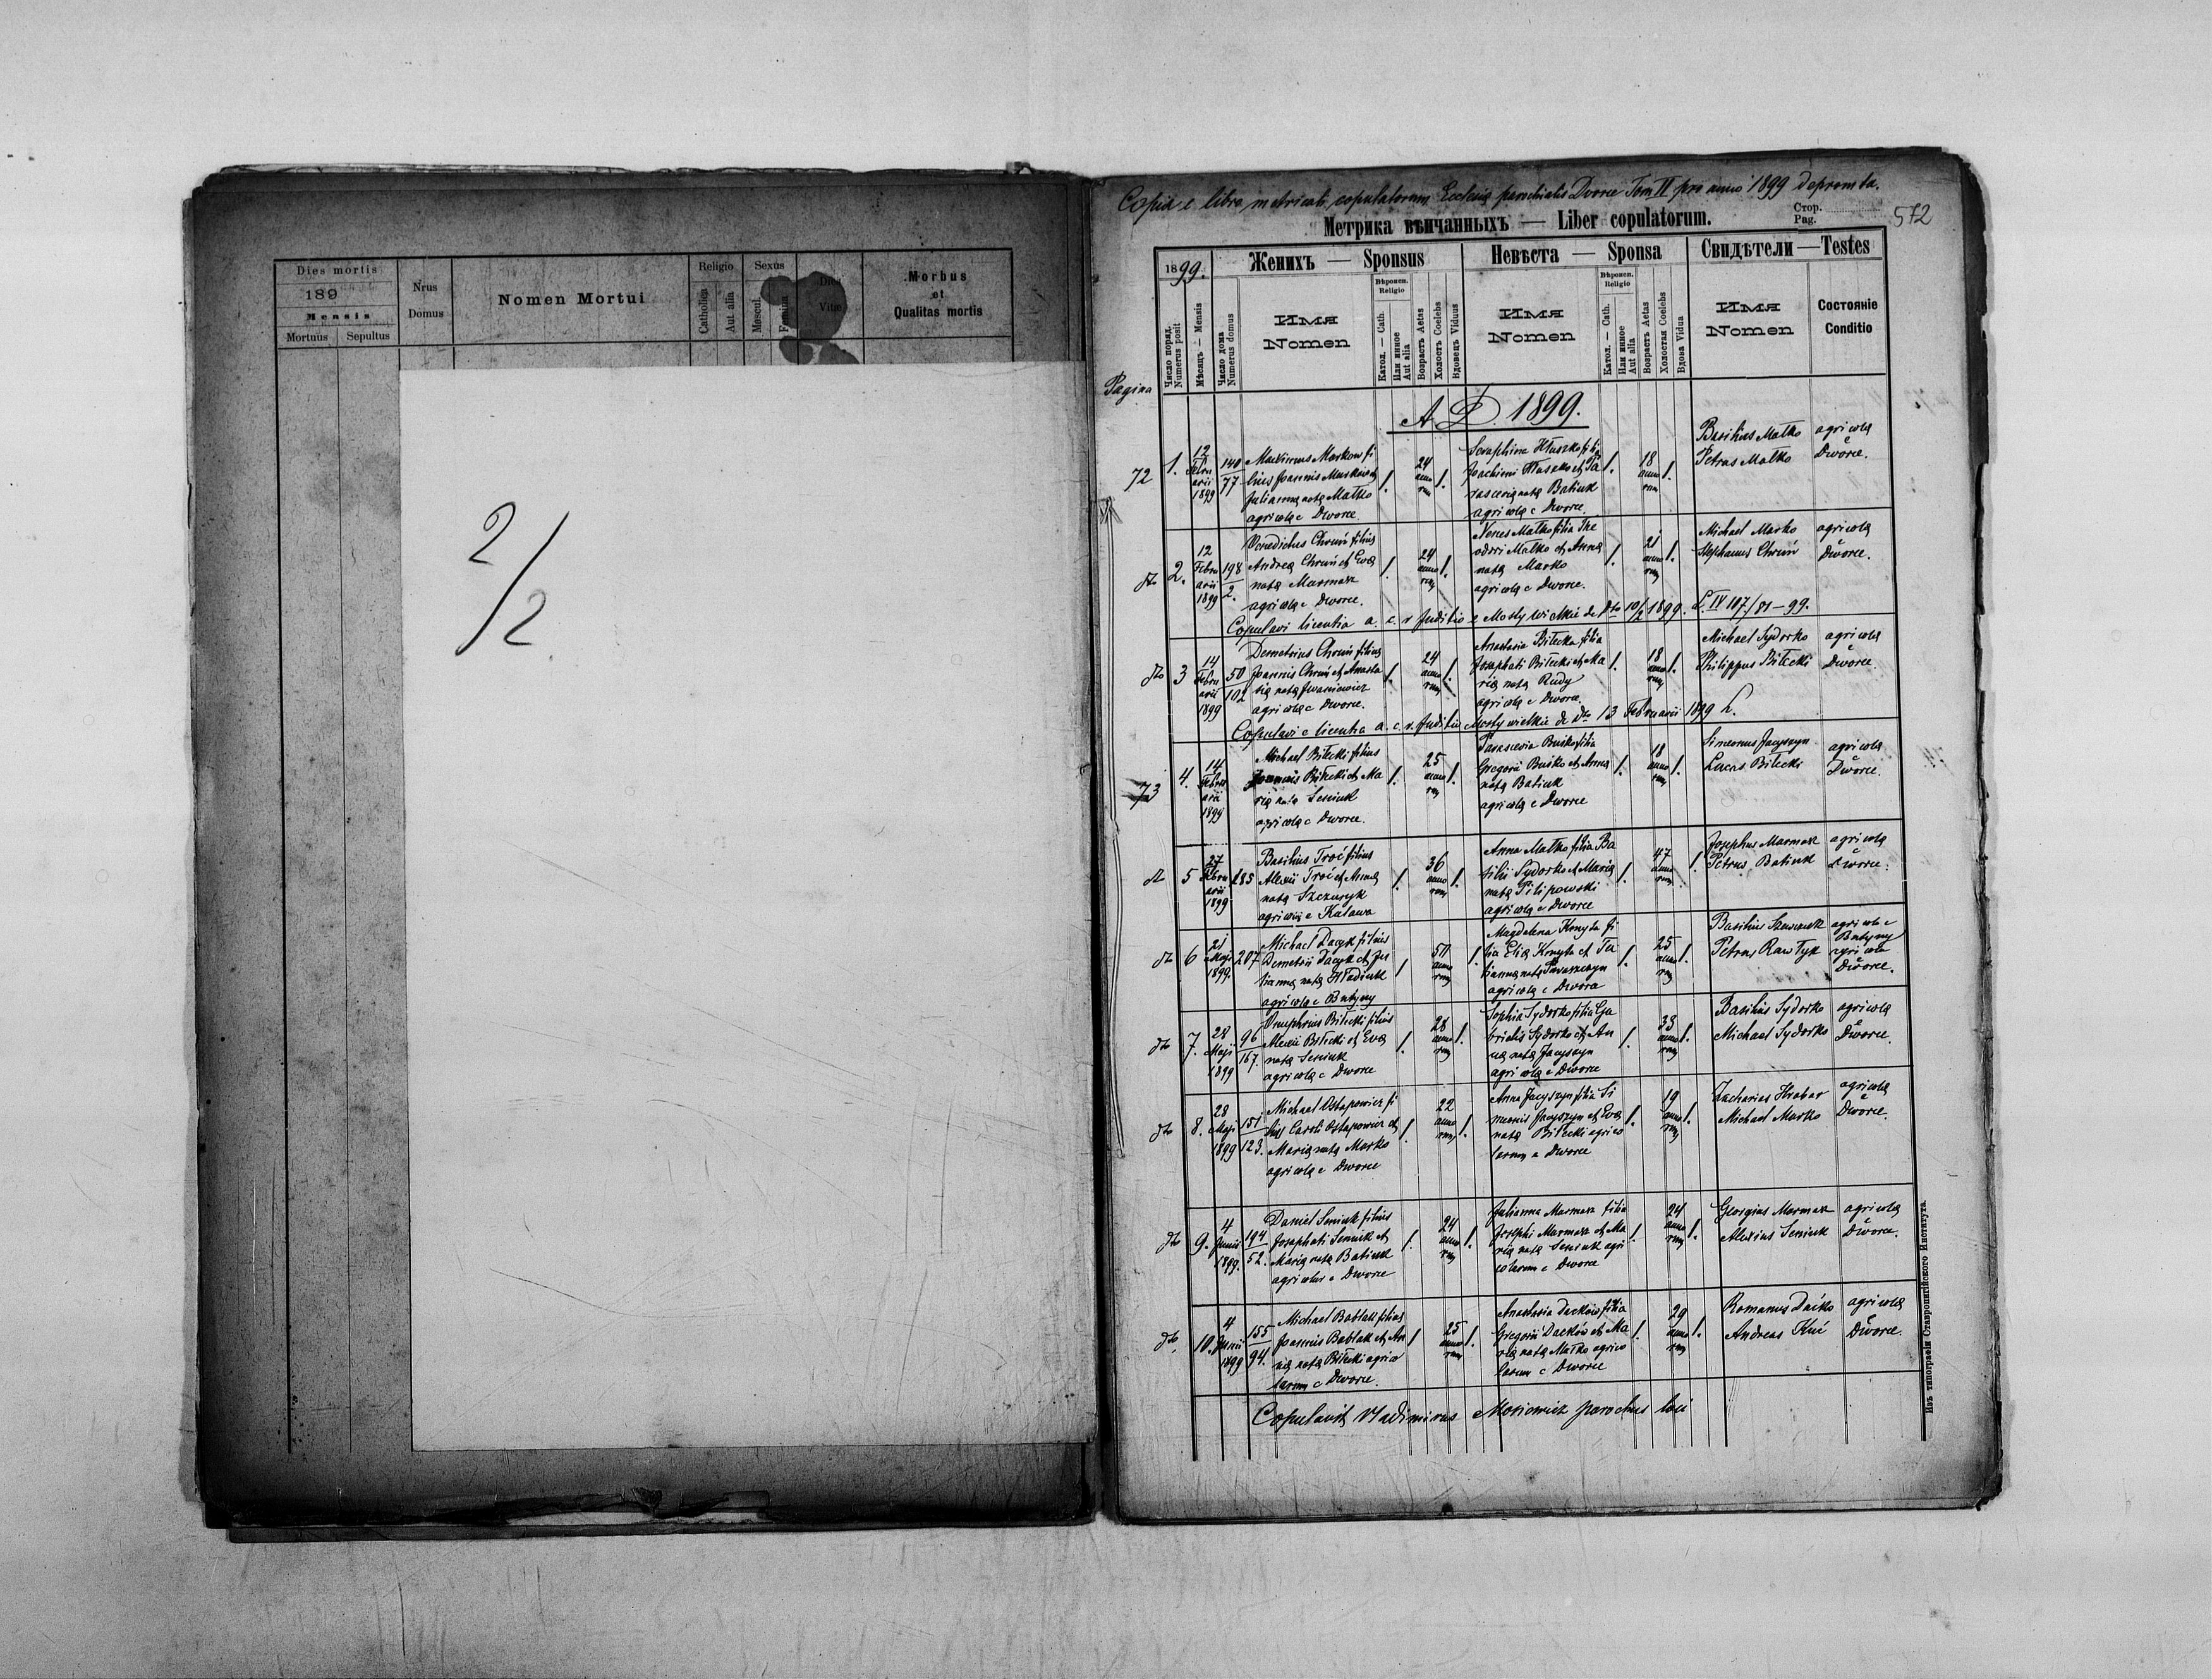 Dies mortis
189
Mensis
Mortuus Sepultus
Nrus
Domus
Nomen Mortui
Religio
Catholica
Aut alia
Sexus
Mascul.
Femina
Dies
Vitae
Morbus
et
Qualitas mortis
2/2
Copia e libro metricali copulatorum Ecclesiæ parochialis Dworce Tom II pro anno 1899 deprompta.
Метрика вѣнчанныхъ — Liber copulatorum.
Стор.
Pag.
572
1899.
Женихъ — Sponsus
Невѣста — Sponsa
Свидѣтели — Testes
Число поряд.
Numerus posit
Мѣсяцъ — Mensis
Число дома
Numerus domus
Имя
Nomen
Вѣроисп.
Religio
Катол. — Cath.
Или иное
Aut alia
Возрастъ Aetas
Холостъ Coelebs
Вдовецъ Viduus
Имя
Nomen
Вѣроисп.
Religio
Катол. — Cath.
Или иное
Aut alia
Возрастъ Aetas
Холостая Coelebs
Вдова Vidua
Имя
Nomen
Состояніе
Conditio
Pagina
A D. 1899.
72
1.
12
Febru
arii
1899
140
77
Markow fi
lius Joannis Markow et
Julianna nata Matko
agricolæ e Dworce.
1.
24
anno
rum
1.
Seraphina Hłuszko filia
Joachimi Hłuszko et Pa
rasceviæ nata Batiuk
agricolæ e Dworce.
1.
18
anno
rum
1.
Basilius Matko
Petrus Matko
agricolæ
e
Dworce.
dto
2.
12
Febru
arii
1899
198
2.
Venedictus Chruń filius
Andreæ Chruń et Eva
nata Marmasz
agricolæ e Dworce.
1.
24
anno
rum
1.
Matko filia The
odori Matko et Anna
nata Marko
agricolæ e Dworce.
1.
21
anno
rum
1.
Michael Marko
Stephanus Chruń
agricolæ
e
Dworce.
Copulavi licentia a. c. r. Juditio e Mosty wielkie de dto 10/2 1899. L. IV 107/81-99.
dto
3
14
Febru
arii
1899
50
102
Demetrius Chruń filius
Joannis Chruń et Anasta
siæ nata Iwasiewicz
agricolæ e Dworce.
1.
24
anno
rum
1.
Anastasia Biłecka filia
Josaphati Biłecki et Ma
riæ nata Rudy
agricolæ e Dworce.
1.
18
anno
rum
1.
Michael Sydorko
Philippus Biłecki
agricolæ
e
Dworce.
Copulavi e licentia a. c. r. Juditii Mosty wielkie de dto 13 Februarii 1899 L.
73
4.
14
Febru
arii
1899
Michael Biłecki filius
Joannis Biłecki et Ma
riæ nata Seniuk
agricolæ e Dworce.
1.
25
anno
rum
1.
Parascevia Buśko filia
Gregorii Buśko et Anna
nata Batiuk
agricolæ e Dworce
1.
18
anno
rum
1.
Simeonus Jacyszyn
Lucas Bilecki
agricolæ
e
Dworce.
dto
5
27
Febru
arii
1899
185
Basilius Troć filius
Alexii Troć et Anna
nata Szczuryk
agricolæ e Kulawa
1.
36
anno
rum
1.
Anna Matko filia Ba
silii Sydorko et Maria
nata Pilipowski
agricolæ e Dworce
1.
47
anno
rum
1.
Josephus Marmasz
Petrus Batiuk
agricolæ
e
Dworce.
dto
6
21
Maji
1899.
207
Michael Dacyk filius
Demetrii Dacyk et Ju
lianna nata Hładiuk
agricolæ e Butyny
1
50
anno
rum
1.
Magdalena Konyta fi
lia Eliæ Konyta et Ta
tianna nata
agricolæ e Dworce
1.
25
anno
rum
1.
Basilius
Petrus Rawłyk
agricola e
Butyny
agricola
e
Dworce.
dto
7.
28
Maji
1899
96
167.
Onuphrius Biłecki filius
Alexii Biłecki et Eva
nata Seniuk
agricolæ e Dworce
1.
28
anno
rum
1.
Sophia Sydorko filia Ga
brielis Sydorko et An
na nata Jacyszyn
agricolæ e Dworce
1.
33
anno
rum
1.
Basilius Sydorko
Michael Sydorko
agricolæ
e
Dworce.
dto
8.
28
Maji
1899
151
123.
Michael Ostapowicz fi
lius Caroli Ostapowicz et
Mariæ nata Marko
agricolæ e Dworce
1.
22
anno
rum
1.
Anna Jacyszyn filia Si
meonis Jacyszyn et Eva
nata Biłecki agrico
larum e Dworce
1.
19
anno
rum
1.
Zacharias Hrabar
Michael Marko
agricolæ
e
Dworce.
dto
9.
4
Junii
1899.
194
52.
Daniel Seniuk filius
Josaphati Seniuk et
Mariæ nata Batiuk
agricolar e Dworce
1.
24
anno
rum
1.
Julianna Marmasz filia
Josephi Marmasz et Ma
riæ nata Seniuk agri
colarum e Dworce
1.
24
anno
rum
1.
Georgius Marmasz
Alexius Seniuk
agricolæ
e
Dworce.
dto
10.
4
Junii
1899
155
94.
Michael Bablak filius
Joannis Bablak et An
na nata Biłecki agrico
larum e Dworce.
1
25
anno
rum
1.
Anastasia Dacków filia
Gregorii Dacków et Ma
ria nata Matko agrico
larum e Dworce
1.
29
anno
rum
1.
Romanus Daćko
Andreas Kuć
agricolæ
e
Dworce.
Copulavit Vladimirus Mosiewicz parochus loci
Изъ типографіи Ставропигійского Института.